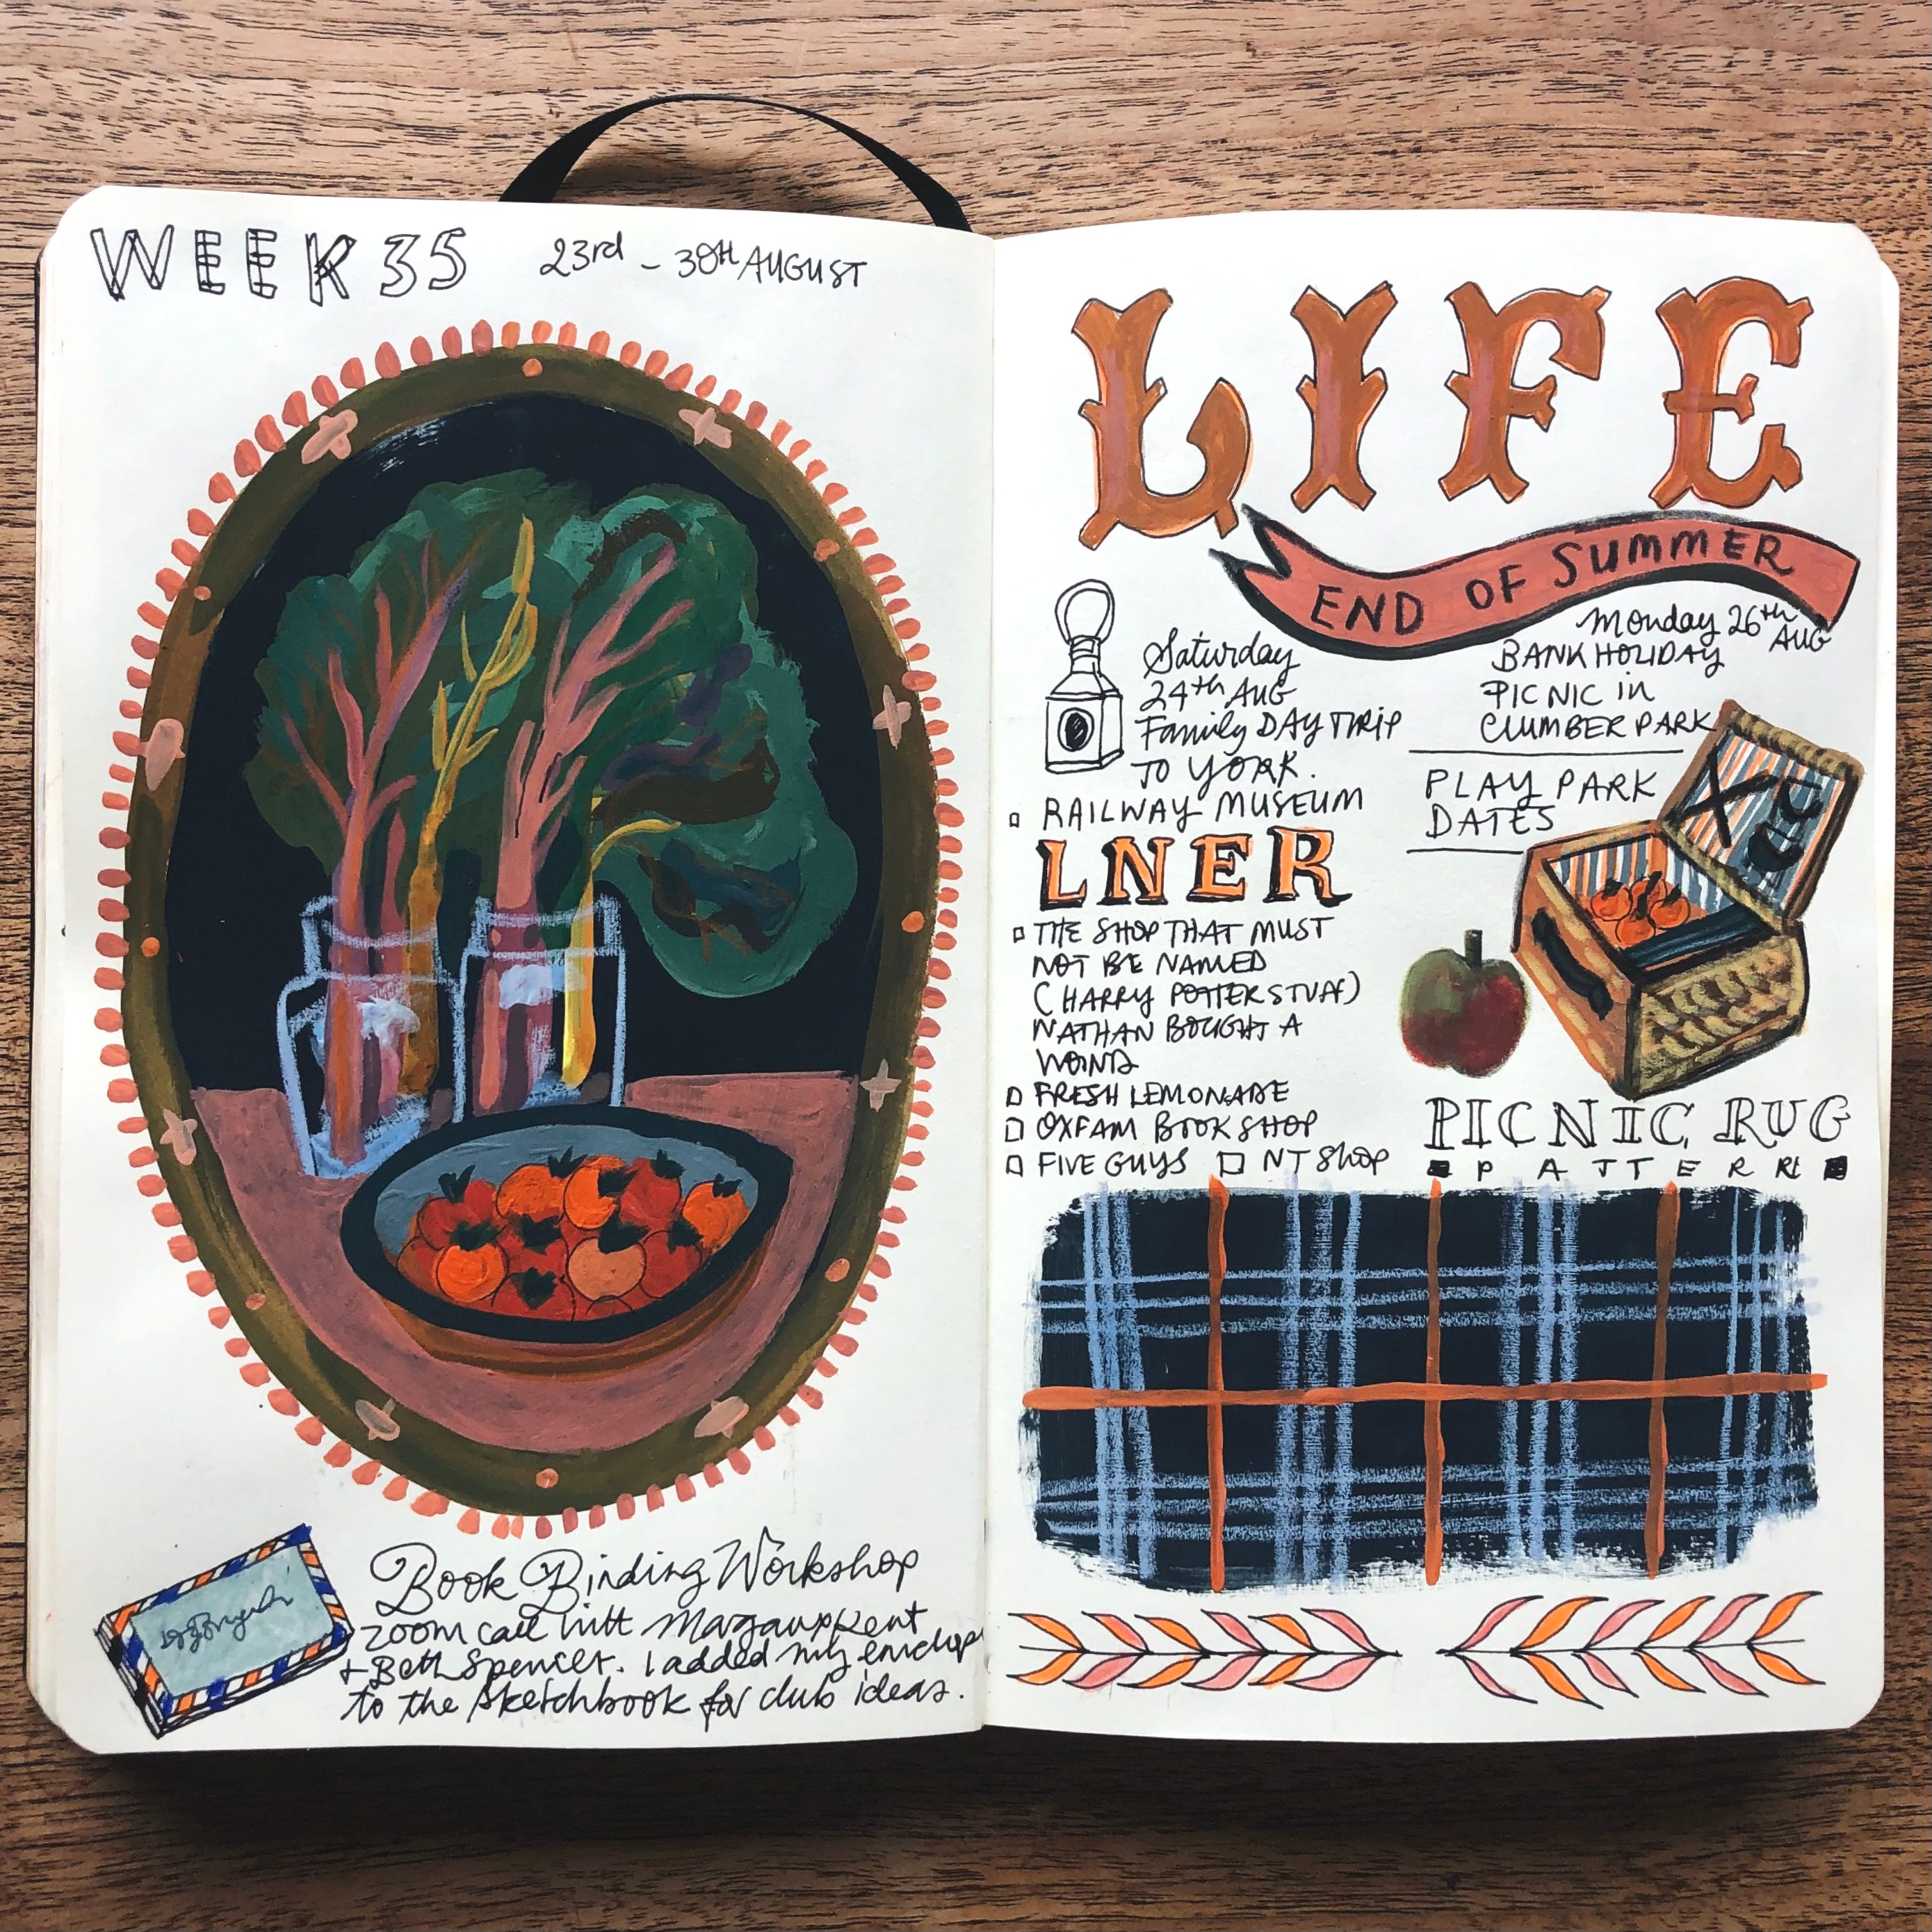 WEEK 35
23rd - 30th AUGUST
Book Binding Workshop
zoom call with
+ Beth Spencer. I added my envelop
to the sketchbook for club ideas.
LIFE
END OF SUMMER
Saturday
24th AUG
Family DAY TRIP
TO YORK.
RAILWAY MUSEUM
LNER
THE SHOP THAT MUST
NOT BE NAMED
(HARRY POTTER STUFF)
NATHAN BOUGHT A
WAND
FRESH LEMONADE
OXFAM BOOK SHOP
FIVE GUYS NT Shop
Monday 26th
AUG
BANK HOLIDAY
PICNIC in
CLUMBER PARK
PLAY PARK
DATES
PICNIC RUG
PATTERN